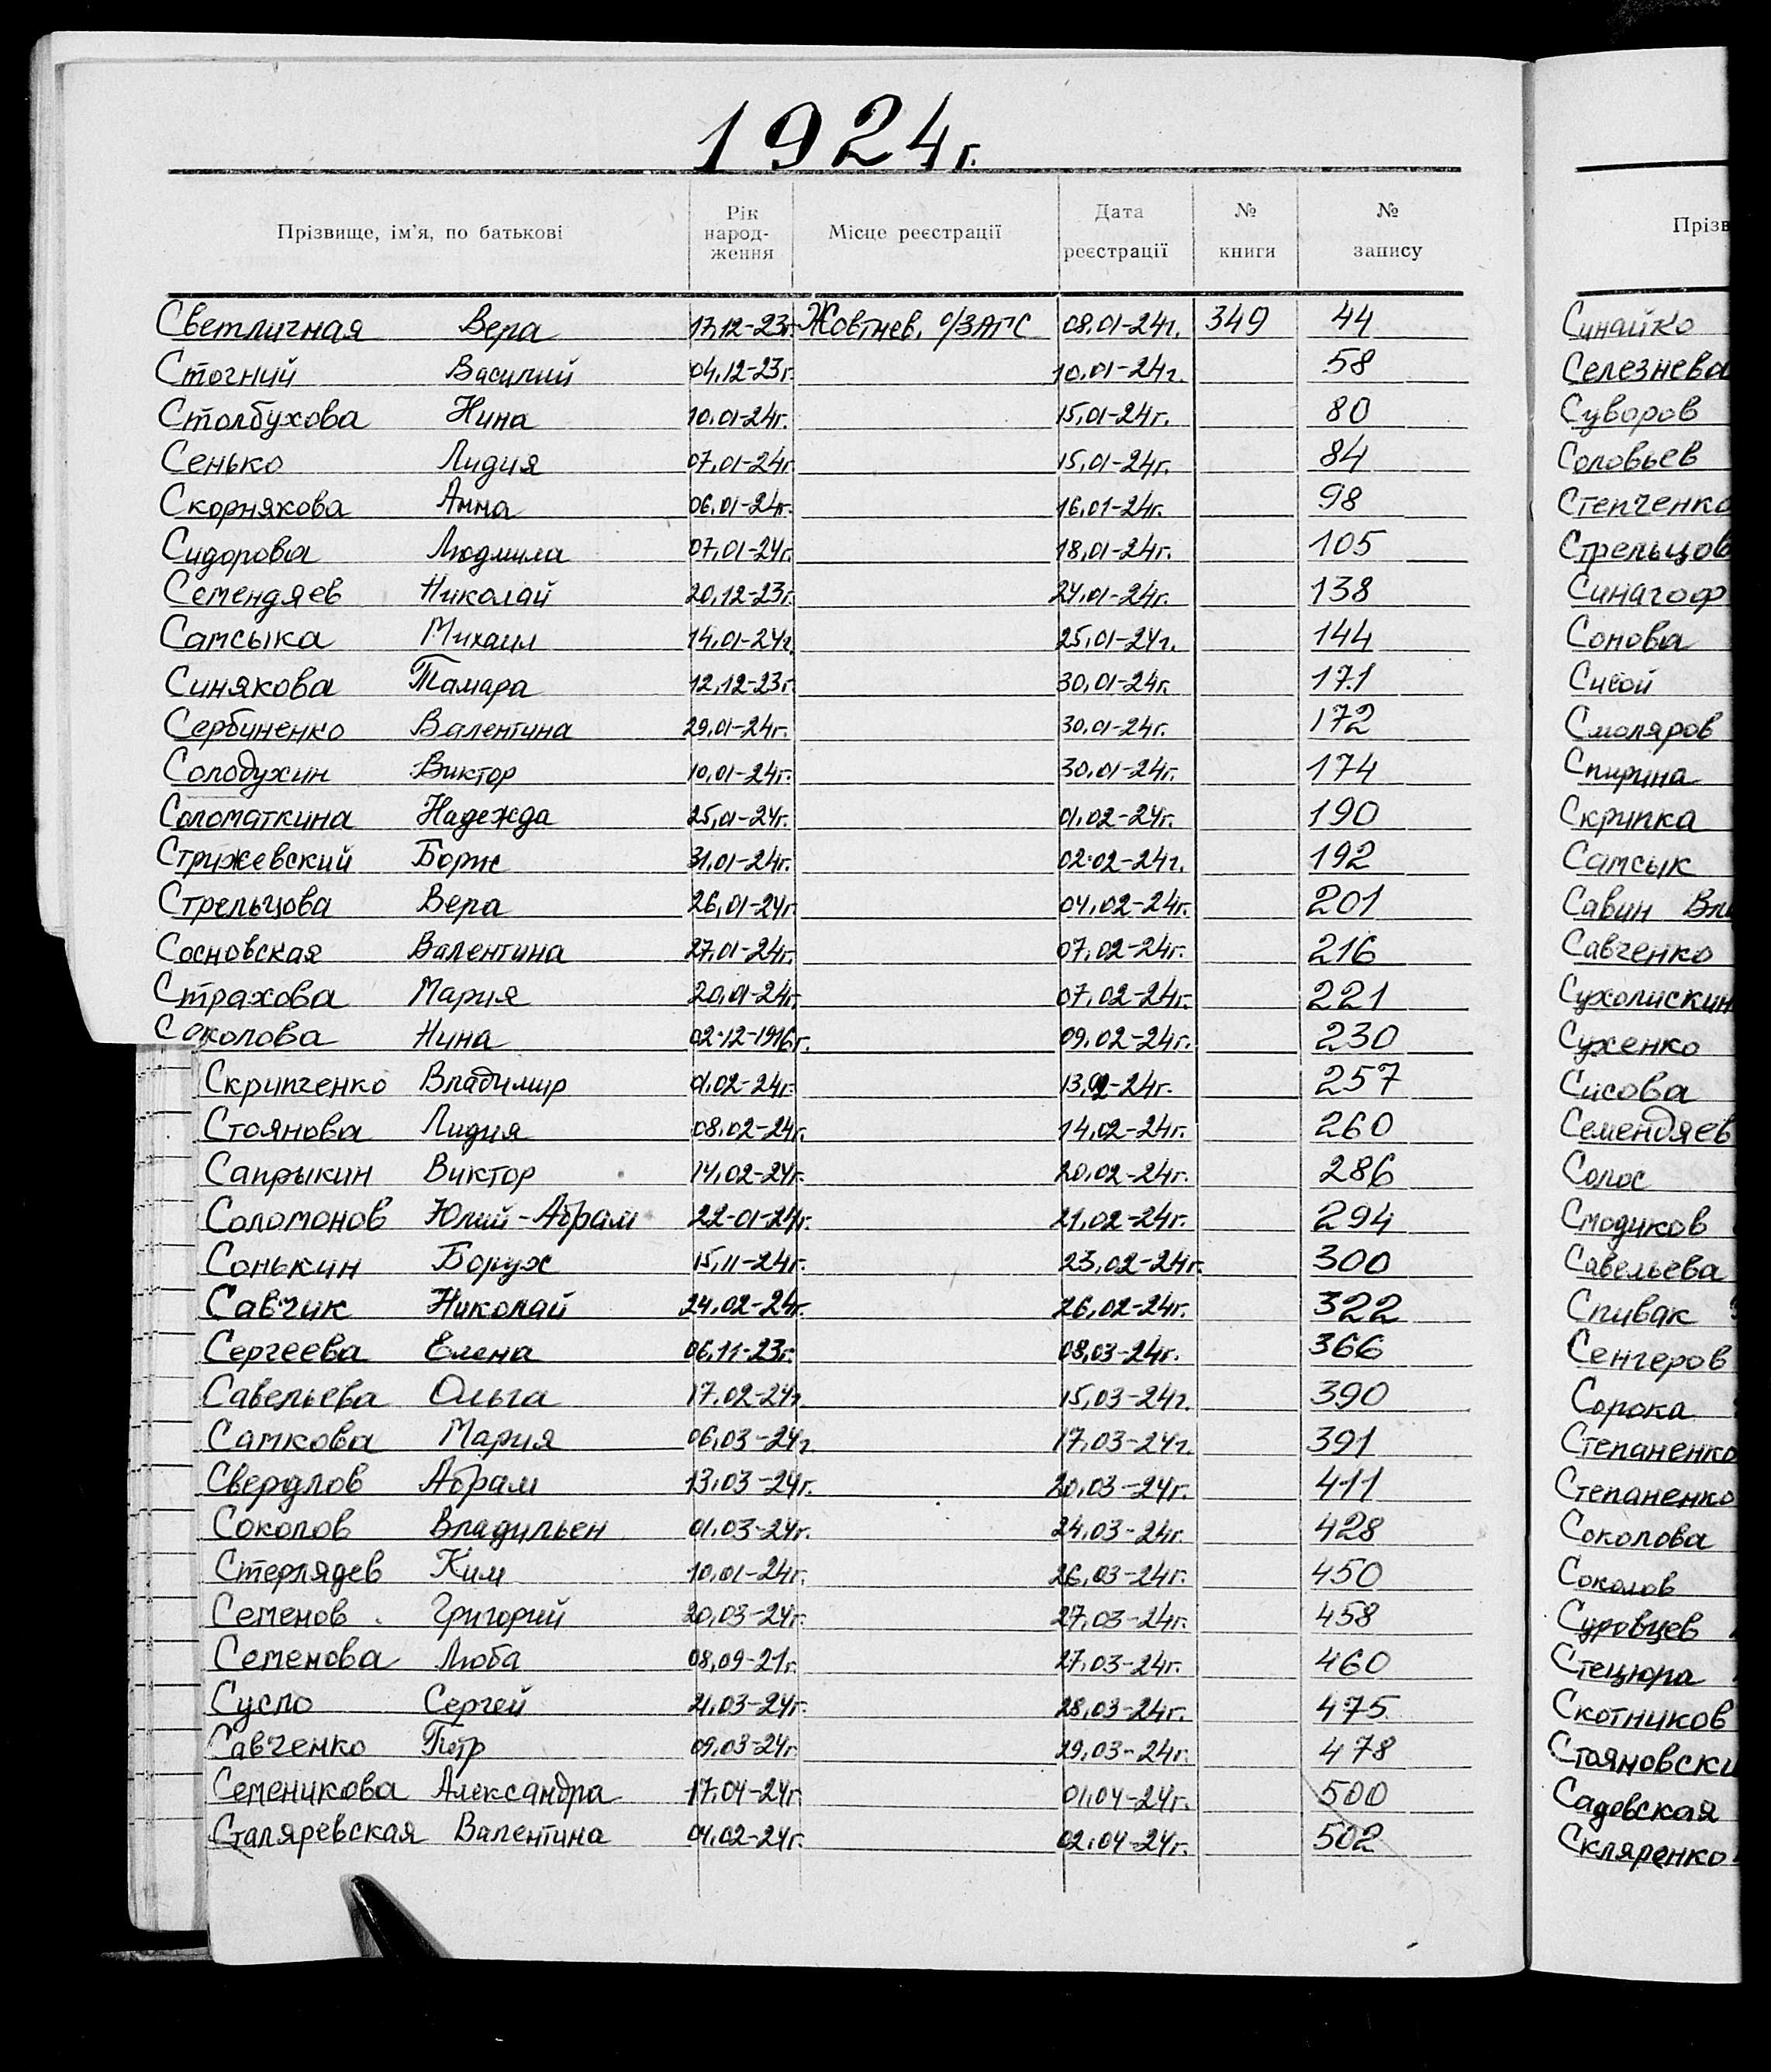 1924г.
Прізвище, ім'я, по батькові Рік народ-ження Місце реєстрації Дата реєстрації № книги № запису
Светличная Вера 17.12-23г. Жовтнев. о/ЗАГС 08.01-24г. 349 44
Стогний Василий 04.12-23г. 10.01-24г. 58
Столбухова Нина 10.01-24г. 15.01-24г. 80
Сенько Лидия 07.01-24г. 15.01-24г. 84
Скорнякова Анна 06.01-24г. 16.01-24г. 98
Сидорова Людмила 07.01-24г. 18.01-24г. 105
Семендяев Николай 20.12-23г. 24.01-24г. 138
Самсыка Михаил 14.01-24г. 25.01-24г. 144
Синякова Тамара 12.12-23г. 30.01-24г. 171
Сербиненко Валентина 29.01-24г. 30.01-24г. 172
Солодухин Виктор 10.01-24г. 30.01-24г. 174
Соломаткина Надежда 25.01-24г. 01.02-24г. 190
Стружевский Борис 31.01-24г. 02.02-24г. 192
Стрельцова Вера 26.01-24г. 04.02-24г. 201
Сосновская Валентина 27.01-24г. 07.02-24г. 216
Страхова Мария 20.01-24г. 07.02-24г. 221
Соколова Нина 02.12-1916г. 09.02-24г. 230
Скрипченко Владимир 01.02-24г. 13.02-24г. 257
Стоянова Лидия 08.02-24г. 14.02-24г. 260
Сапрыкин Виктор 14.02-24г. 20.02-24г. 286
Соломонов Юлий-Абрам 22-01-24г. 21.02-24г. 294
Сонькин Борух 15.11-24г. 23.02-24г. 300
Савчик Николай 24.02-24г. 26.02-24г. 322
Сергеева Елена 06.11-23г. 08.03-24г. 366
Савельева Ольга 17.02-24г. 15.03-24г. 390
Самкова Мария 06.03-24г. 17.03-24г. 391
Свердлов Абрам 13.03-24г. 20.03-24г. 411
Соколов Владильен 01.03-24г. 24.03-24г. 428
Стерлядев Ким 10.01-24г. 26.03-24г. 450
Семенов Григорий 20.03-24г. 27.03-24г. 458
Семенова Люба 08.09-21г. 27.03-24г. 460
Сусло Сергей 21.03-24г. 28.03-24г. 475
Савченко Петр 09.03-24г. 29.03-24г. 478
Семеникова Александра 17.04-24г. 01.04-24г. 500
Сталяревская Валентина 04.02-24г. 02.04-24г. 502
Прізв
Синайко
Селезнева
Суворов
Соловьев
Степченко
Стрельцов
Синагоф
Сонова
Сисой
Смоляров
Спирина
Скрипка
Самсык
Савин Вла
Савченко
Сухолискин
Сухенко
Сисова
Семендяев
Солос
Смодиков
Савельева
Спивак
Сенгеров
Сорока
Степаненко
Степаненко
Соколова
Соколов
Суровцев
Стецюра
Скотников
Стояновски
Садовская
Скляренко